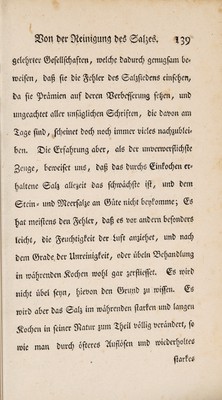 Von der Reinigung des Salzes. 139
gelehrter Gesellschaften, welche dadurch genugsam be-
weisen, daß sie die Fehler des Salzsiedens einsehen,
da sie Prämien auf deren Verbesserung setzen, und
ungeachtet aller unsäglichen Schriften, die davon am
Tage sind, scheinet doch noch immer vieles nachzublei-
ben. Die Erfahrung aber, als der unverwerflichste
Zeuge, beweiset uns, daß das durchs Einkochen er-
haltene Salz allezeit das schwächste ist, und dem
Stein- und Meersalze an Güte nicht beykomme; Es
hat meistens den Fehler, daß es vor andern besonders
leicht, die Feuchtigkeit der Luft anziehet, und nach
dem Grade, der Unreinigkeit, oder übeln Behandlung
in währenden Kochen wohl gar zerfliesset. Es wird
nicht übel seyn, hievon den Grund zu wissen. Es
wird aber das Salz im währenden starken und langen
Kochen in seiner Natur zum Theil völlig verändert, so
wie man durch öfteres Auflösen und wiederholtes
starkes